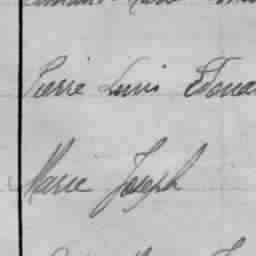 Pierre Louis Edoua
Marie Joseph